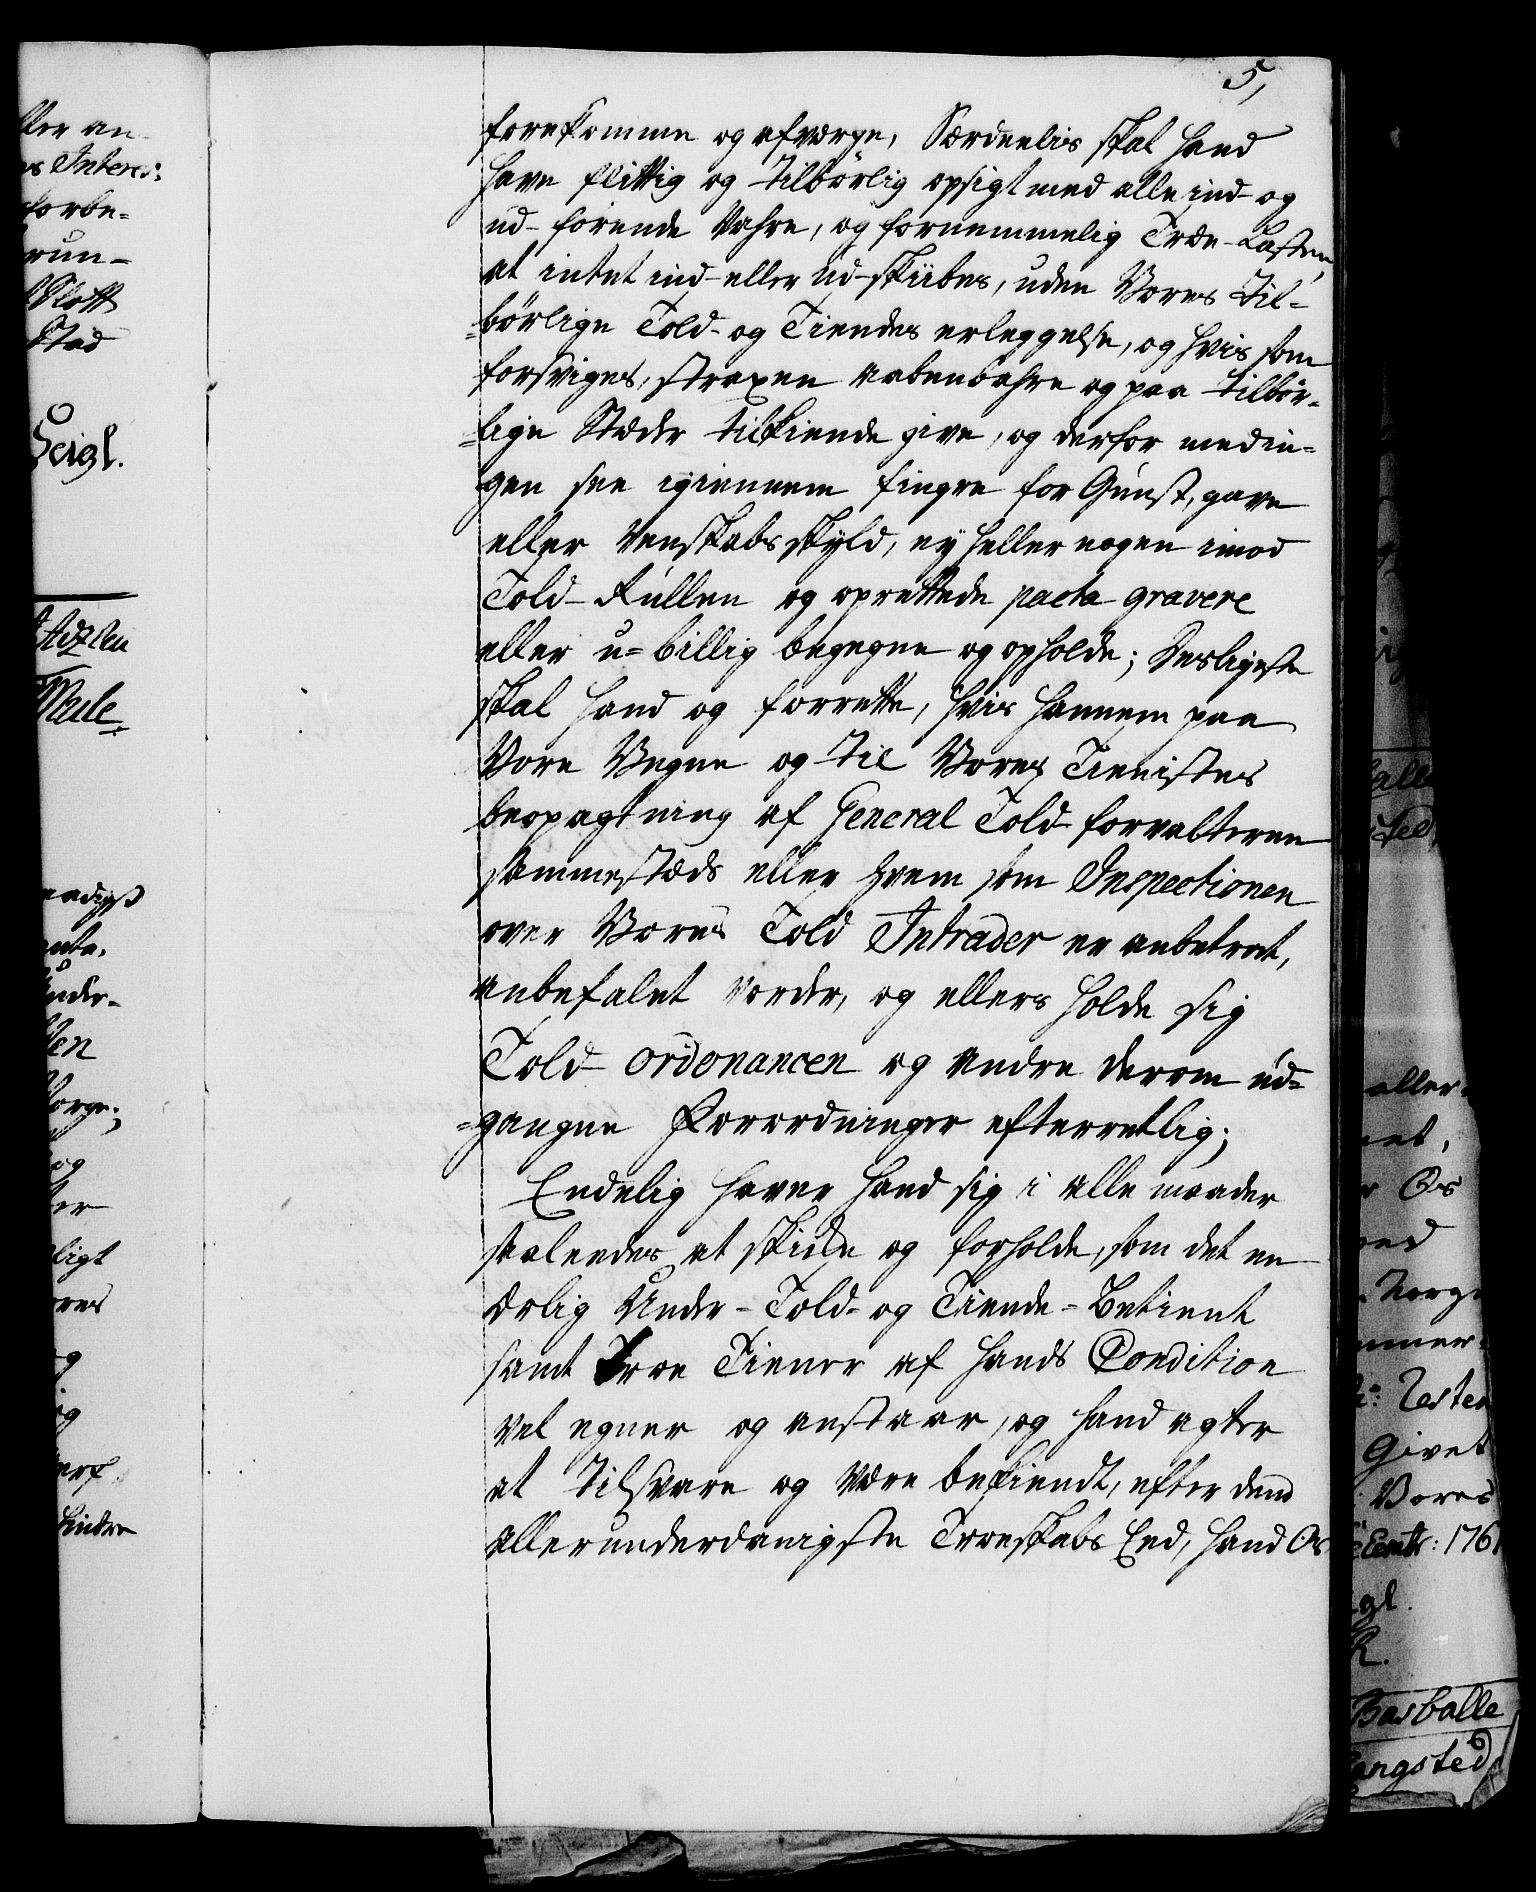 5,
forekomme og afværge, Særdeelis skal hand
have flittig og tilbørlig opsigt med alle ind- og
ud-førende Vahre, og fornemmelig Træ-Lasten,
at intet ind- eller ud-skiibes, uden Vores til-
=børlige Told- og Tiendes erleggelse, og hvis som
forsviges, straxen aabenbahre og paa tilbør-
=lige Stæder tilkiende give, og derfor med in-
gen see igiennem fingre for Gunst, gave
eller Venskabs skyld, ey heller nogen imod
Told-Rullen og oprettede pacta gravere
eller u-billig begegne og opholde; Desligeste
skal hand og forrette, hvis hannem paa
Vore Vegne og til Vores Tienistes
beopagtning af General Told-forvalteren
sammestæds eller hvem som Inspectionen
over Vores Told Intrader er anbetroet,
anbefalet vorder, og ellers holde sig
Told-Ordonancen og andre derom ud-
=gangne Forordninger efterretlig;
Endelig haver hand sig i alle maader
saaleedes at skicke og forholde, som det en
ærlig Under-Told- og Tiende-Betient
samt Troe Tiener af hands Condition
vel egner og anstaar, og hand agter
at tilsvare og være bekiendt, efter dend
allerunderdanigste Troeskabs Eed, hand Os